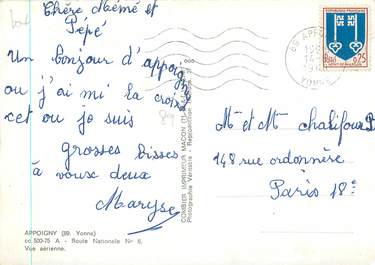 Chère Mémé et
Pépé
Un bonjour d'appoigny
ou j'ai mi la croix
cet ou je suis
grosses bisses
à vouse deux
Maryse
89
APPOIGNY (89. Yonne)
cc 500-75 A - Route Nationale N° 6.
Vue aérienne.
COMBIER IMPRIMEUR MACON
Photographie Véritable - Reproduction
89 APPOIGNY
YONNE
REPUBLIQUE FRANÇAISE
0,25
POSTES
MONT-DE-MARSAN
Mr et Mme Chalifour P
148 rue ordonnère
Paris 18e